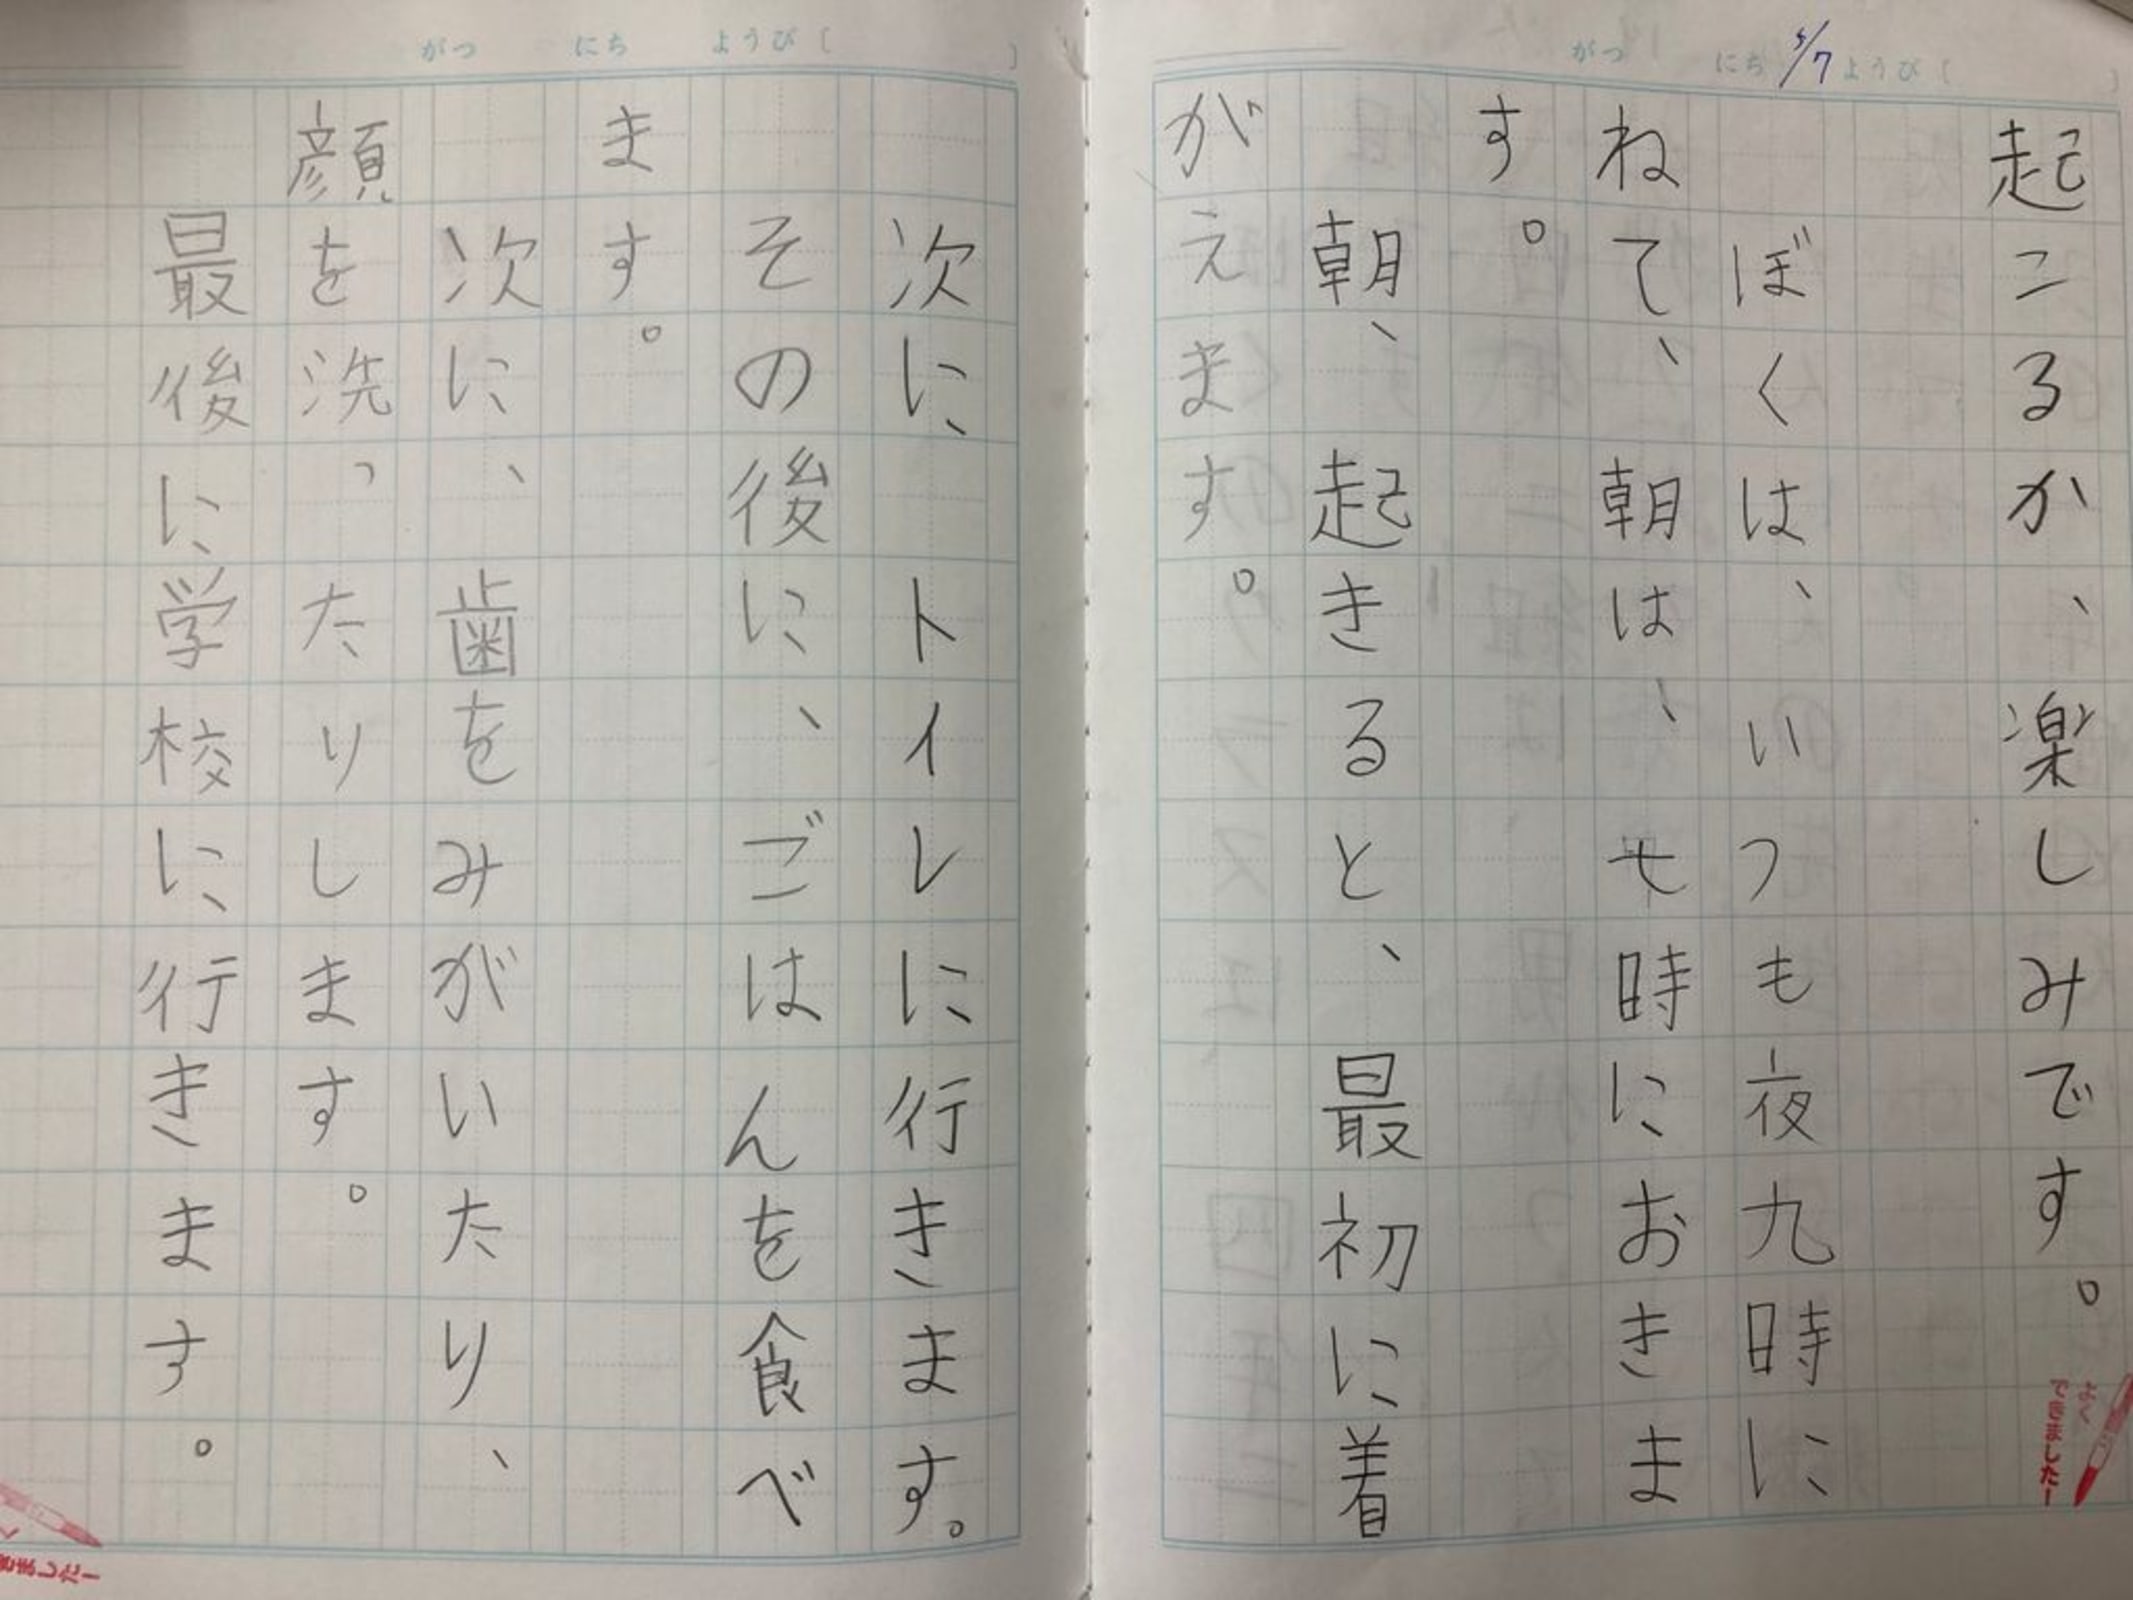 がつ にち 5/7 ようび〔 〕
起こるか、楽しみです。
ぼくは、いつも夜九時に
ねて、朝は、七時におきま
す。
朝、起きると、最初に着
がえます。
がつ にち ようび〔 〕
次に トイレに行きます。
その後に、ごはんを食べ
ます。
次に、歯をみがいたり、
顔を洗ったりします。
最後に学校に行きます。
できました!
きました!